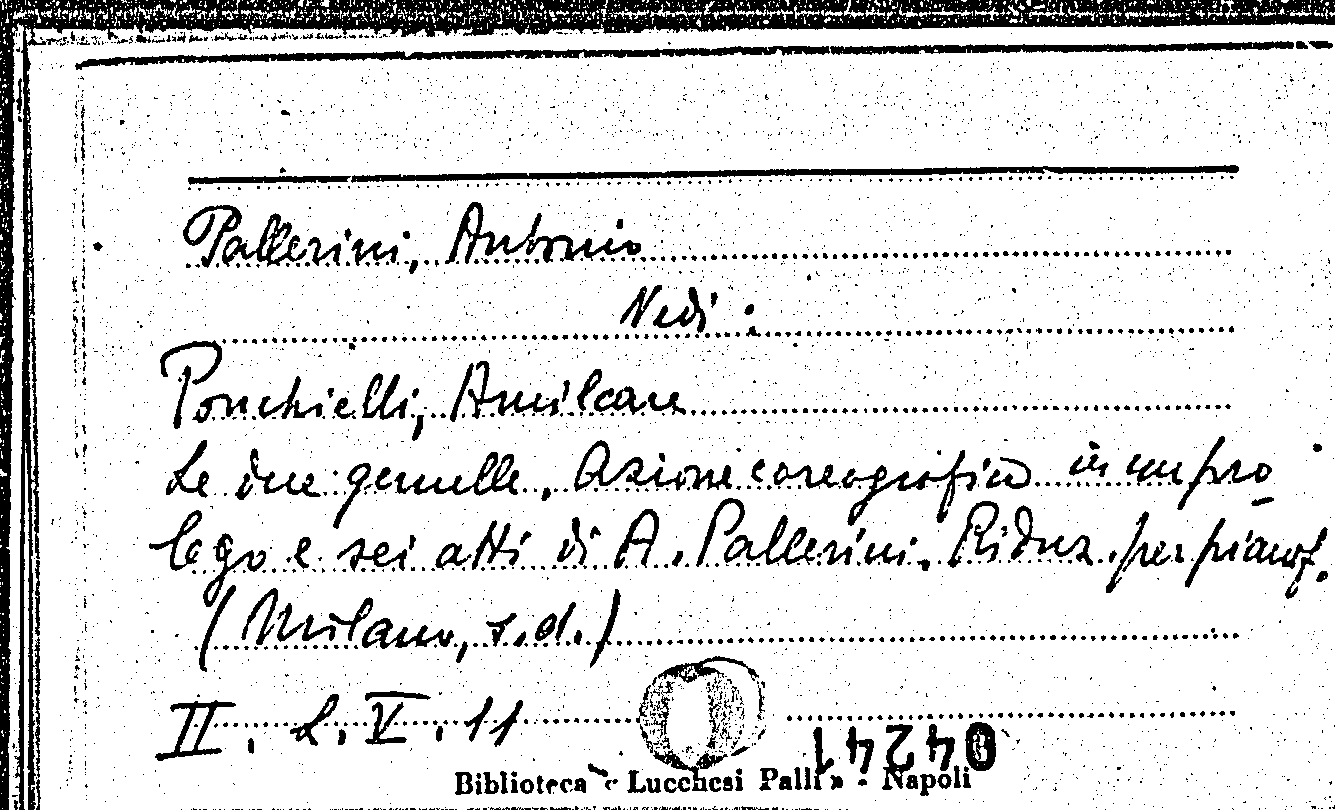 Pallerini, Antonio
Vedi :
Ponchielli, Amilcare
Le due gemelle, Azione coreografica in un pro
logo e sei atti di A. Pallerini. Riduz. per pianof.
(Milano, s.d.)
II. L. V. 11
04241
Biblioteca « Lucchesi Palli » - Napoli